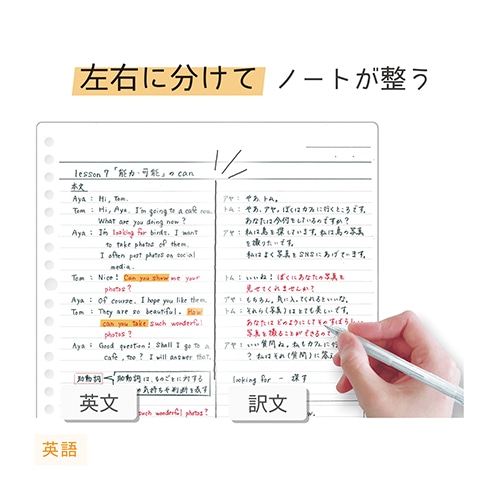 左右に分けて ノートが整う
lesson 7 「能力・可能」の can
本文
Aya : Hi, Tom.
Tom : Hi, Aya. I'm going to a cafe now.
What are you doing now?
Aya : I'm looking for birds. I want
to take photos of them.
I often post photos on social
media.
Tom : Nice! Can you show me your
photos?
Aya : Of course. I hope you like them.
Tom : They are so beautiful. How
can you take such wonderful
photos?
Aya : Good question! Shall I go to a
cafe, too? I will answer that.
助動詞 助動詞は、ものごとに対する
の気持ちや判断を表す
英文
such wonderful photos?
アヤ : やあ、トム。
トム : やあ、アヤ。ぼくはカフェに行くところです。
あなたは今何をしているのですか?
アヤ : 私は鳥を探しています。私は鳥の写真
を撮りたいです。
私はよく写真をSNSにあげています。
トム : いいね! ぼくにあなたの写真を
見せてくれませんか?
アヤ : もちろん。気に入ってくれるといいな。
トム : それら(写真)はとても美しいです。
あなたはどのようにしてそのすばらしい
写真を撮ることができるので
アヤ : いい質問ね。私もカフェに行
? 私はそれ(質問)に答え
looking for - 探す
訳文
英語